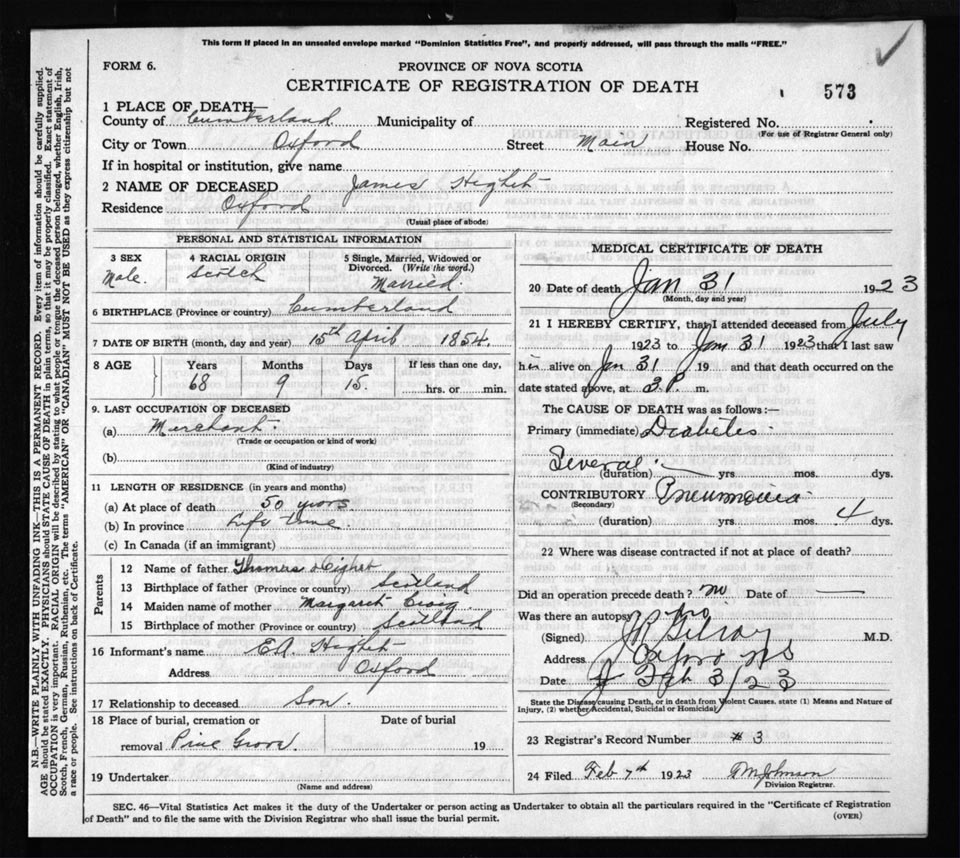 This form if placed in an unsealed envelope marked "Dominion Statistics Free", and properly addressed, will pass through the mails "FREE."
FORM 6.
PROVINCE OF NOVA SCOTIA
CERTIFICATE OF REGISTRATION OF DEATH
573
1 PLACE OF DEATH—
County of Cumberland Municipality of Registered No.
(For use of Registrar General only)
City or Town Oxford Street Main House No.
If in hospital or institution, give name
2 NAME OF DECEASED James Highet
Residence Oxford
(Usual place of abode)
PERSONAL AND STATISTICAL INFORMATION
3 SEX 4 RACIAL ORIGIN 5 Single, Married, Widowed or
Divorced. (Write the word.)
Male. Scotch Married.
6 BIRTHPLACE (Province or country) Cumberland
7 DATE OF BIRTH (month, day and year) 15th April 1854.
8 AGE Years Months Days If less than one day,
68 9 15. hrs. or min.
9. LAST OCCUPATION OF DECEASED
(a) Merchant.
(Trade or occupation or kind of work)
(b)
(Kind of industry)
11 LENGTH OF RESIDENCE (in years and months)
(a) At place of death 50 years
(b) In province Life time
(c) In Canada (if an immigrant)
Parents
12 Name of father Thomas Highet
13 Birthplace of father (Province or country) Scotland
14 Maiden name of mother Margaret Craig
15 Birthplace of mother (Province or country) Scotland
16 Informant's name EA Highet
Address Oxford
17 Relationship to deceased Son.
18 Place of burial, cremation or Date of burial
removal Pine Grove. 19
19 Undertaker
(Name and address)
MEDICAL CERTIFICATE OF DEATH
20 Date of death Jan 31 1923
(Month, day and year)
21 I HEREBY CERTIFY, that I attended deceased from July
1923 to Jan 31 1923 that I last saw
him alive on Jan 31 19 and that death occurred on the
date stated above, at 3 P. m.
The CAUSE OF DEATH was as follows:—
Primary (immediate) Diabetes
Several
(duration) yrs. mos. dys.
CONTRIBUTORY Pneumonia
(Secondary)
(duration) yrs. mos. 4 dys.
22 Where was disease contracted if not at place of death?
Did an operation precede death? no Date of —
Was there an autopsy no
(Signed) M.D.
Address Oxford NS
Date Feb 3/23
State the Disease causing Death, or in death from Violent Causes, state (1) Means and Nature of
Injury, (2) whether Accidental, Suicidal or Homicidal
23 Registrar's Record Number # 3
24 Filed Feb 7th 1923 Johnson
Division Registrar.
SEC. 46—Vital Statistics Act makes it the duty of the Undertaker or person acting as Undertaker to obtain all the particulars required in the "Certificate of Registration
of Death" and to file the same with the Division Registrar who shall issue the burial permit.
(OVER)
N.B.—WRITE PLAINLY WITH UNFADING INK—THIS IS A PERMANENT RECORD. Every item of information should be carefully supplied.
AGE should be stated EXACTLY. PHYSICIANS should STATE CAUSE OF DEATH in plain terms, so that it may be properly classified. Exact statement of
OCCUPATION is very important. RACIAL ORIGIN will be described by stating to what people or tongue the deceased person belonged, whether English, Irish,
Scotch, French, German, Russian, Ruthenian, etc. The terms "AMERICAN" OR "CANADIAN" MUST NOT BE USED as they express citizenship but not
a race or people. See instructions on back of Certificate.